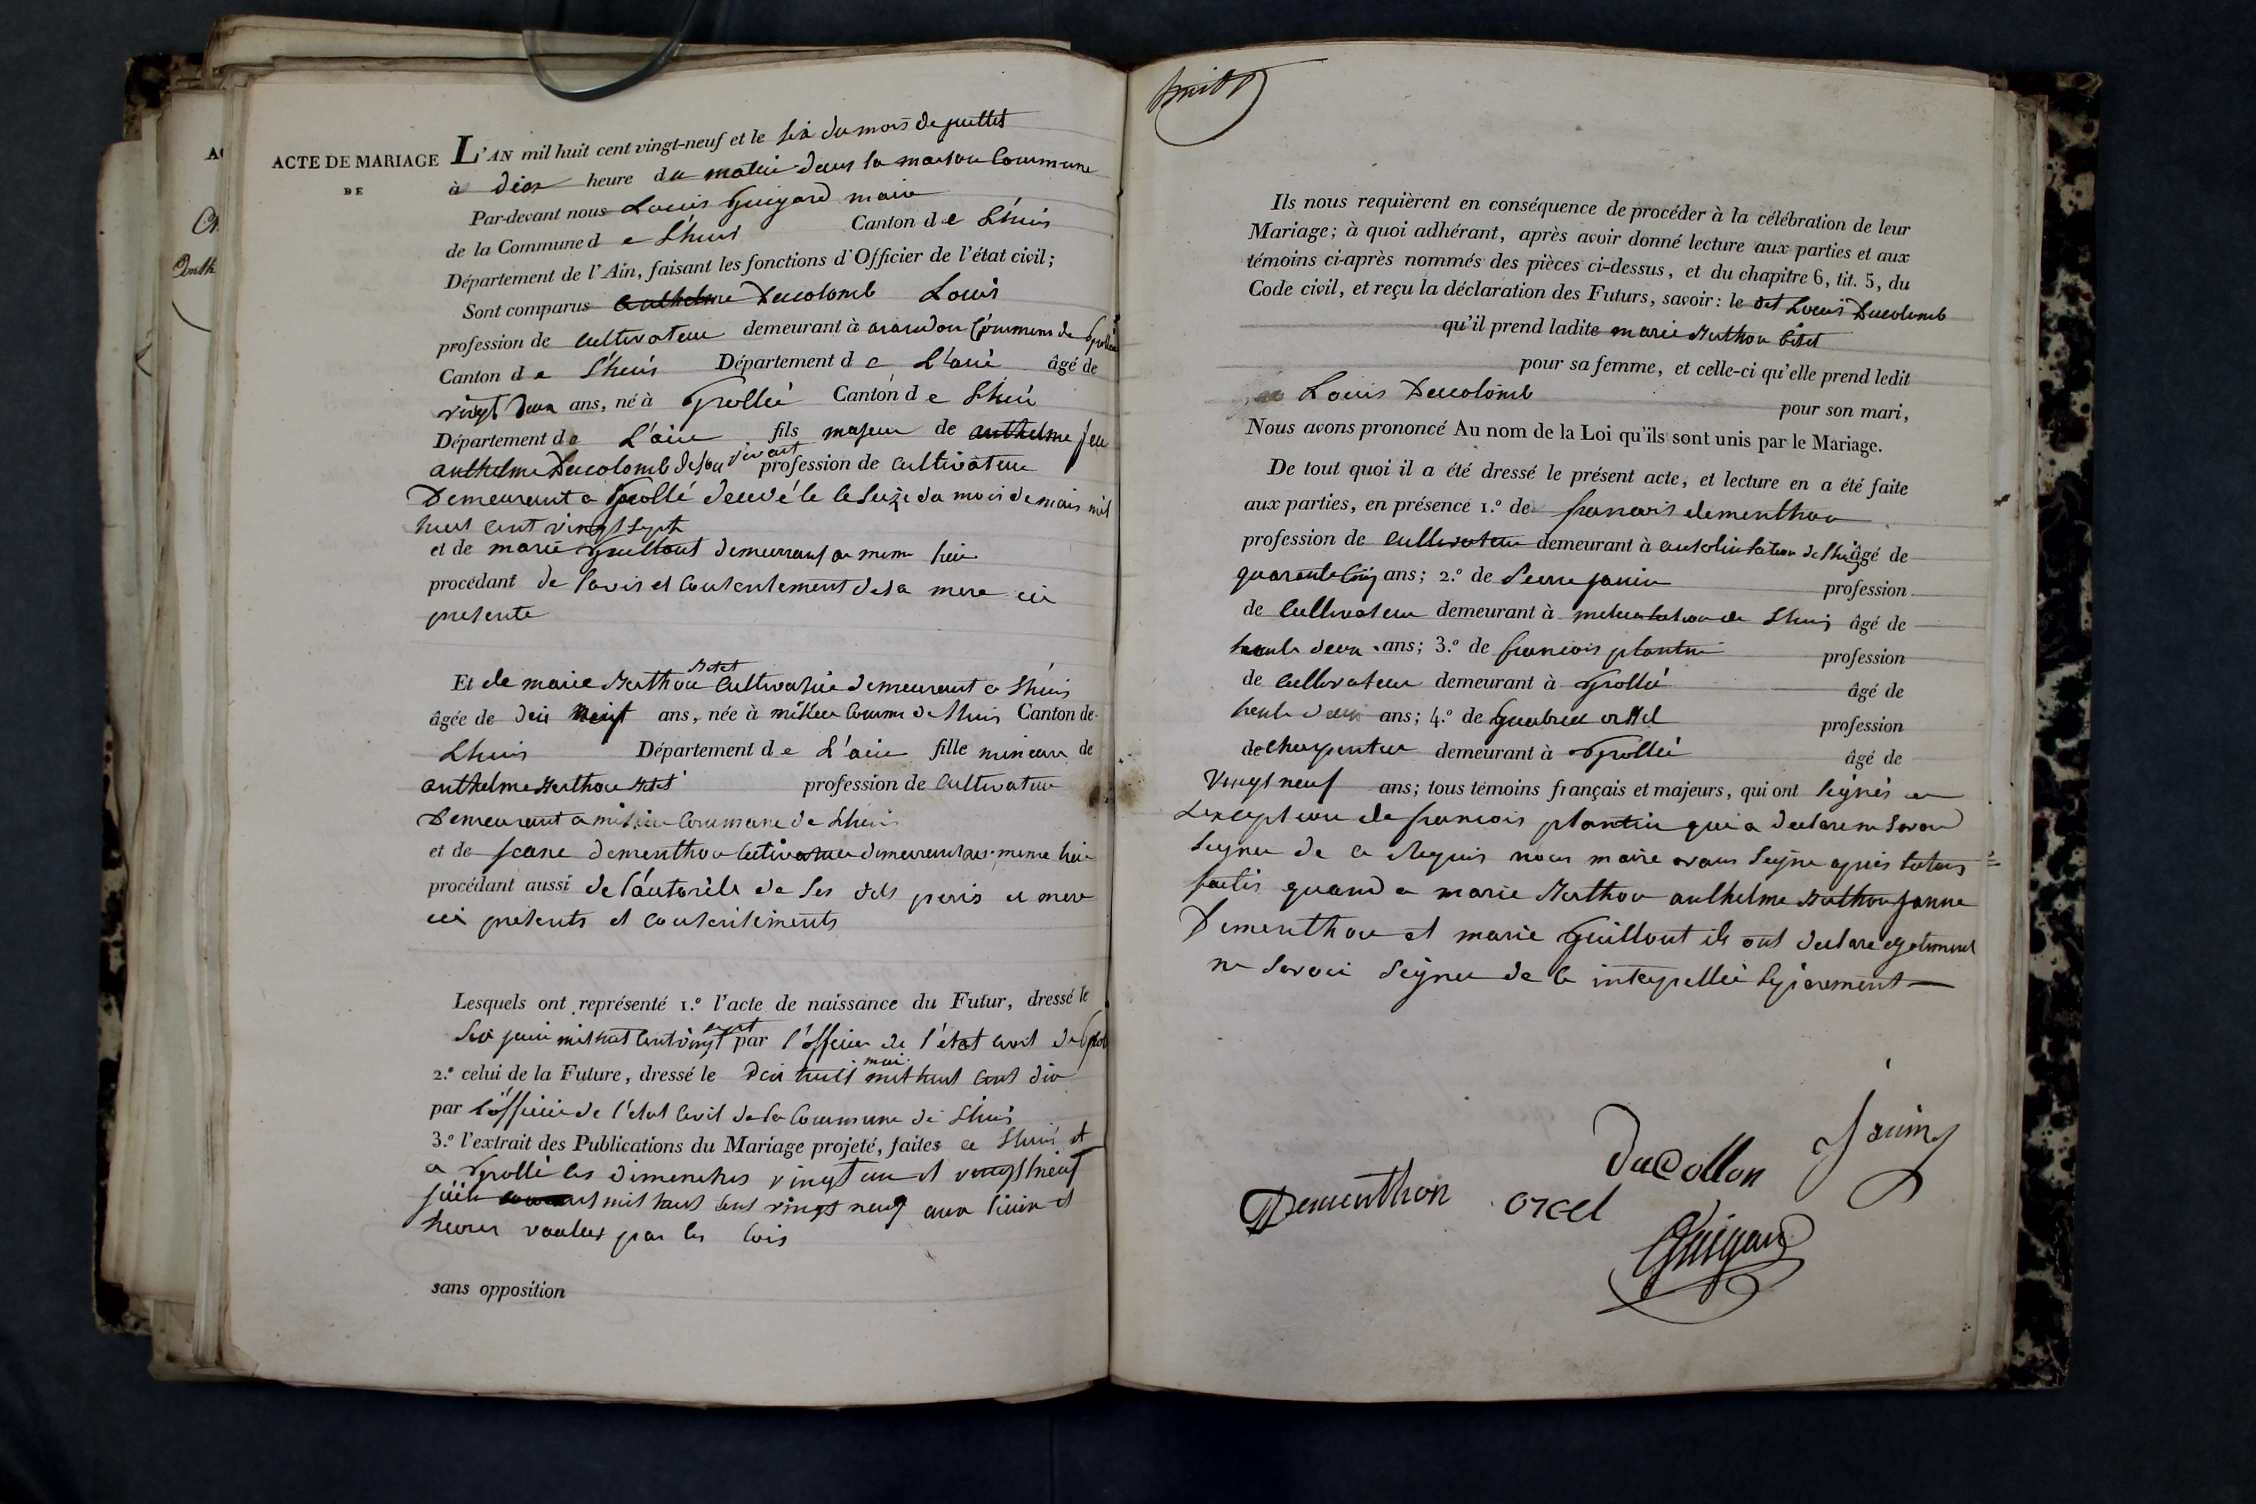 ACTE DE MARIAGE
DE
L'AN mil huit cent vingt-neuf et le six du mois de juillet
à dix heure du matin dans la maison Commune
Par-devant nous Louis Guigard maire
de la Commune de Lhuis Canton de Lhuis
Département de l'Ain, faisant les fonctions d'Officier de l'état civil;
Sont comparus anthelme Ducolomb Louis
profession de cultivateur demeurant à arandon Commune de Grollée
Canton de Lhuis Département de L'ain âgé de
vingt deux ans, né à Grollée Canton de Lhuis
Département de L'ain fils majeur de anthelme feu
anthelme Ducolomb de son vivant profession de cultivateur
Demeurant a Grollé décédé le seize du mois de mars mil
huit cent vingt sept
et de marie Guillout demeurant au meme lieu
procédant de l'avis et consentement de sa mere ici
presente
Et de marie Merthou cultivatrice demeurant a Lhuis
âgée de dix neuf ans, née à millieu Commune de Lhuis Canton de
Lhuis Département de L'ain fille mineure de
anthelme Merthou profession de cultivateur
Demeurant a millieu Commune de Lhuis
et de Jeane dementhou cultivatrice demeurant au meme lieu
procédant aussi de l'autorité de ses dits peres et mere
ici presents et consentements
Lesquels ont représenté 1.º l'acte de naissance du Futur, dressé le
six juin mil huit cent sept par l'officier de l'état civil de
2.º celui de la Future, dressé le dix huit mai mil huit cent dix
par l'officier de l'état civil de la Commune de Lhuis
3.º l'extrait des Publications du Mariage projeté, faites a Lhuis et
a Grollée les dimenches vingt un et vingt neuf
juin mil huit cent vingt neuf aux lieux et
heures voulues par les lois
sans opposition
Ils nous requièrent en conséquence de procéder à la célébration de leur
Mariage; à quoi adhérant, après avoir donné lecture aux parties et aux
témoins ci-après nommés des pièces ci-dessus, et du chapitre 6, tit. 5, du
Code civil, et reçu la déclaration des Futurs, savoir: le dit Louis Ducolomb
qu'il prend ladite marie Merthou
pour sa femme, et celle-ci qu'elle prend ledit
Louis Ducolomb pour son mari,
Nous avons prononcé Au nom de la Loi qu'ils sont unis par le Mariage.
De tout quoi il a été dressé le présent acte, et lecture en a été faite
aux parties, en présence 1.º de francois dementhou
profession de cultivateur demeurant à de Lhuis âgé de
quarante cinq ans; 2.º de pierre janin profession
de cultivateur demeurant à de Lhuis âgé de
trente deux ans; 3.º de francois plantin profession
de cultivateur demeurant à Grollée âgé de
trente deux ans; 4.º de orsel profession
de charpentier demeurant à Grollée âgé de
vingt neuf ans; tous témoins français et majeurs, qui ont signés a
L'exception de francois plantin qui a declare ne savoir
signer de ce Requis nous maire avons signe apres lecture
faite quand a marie Merthou anthelme Merthou janne
Dementhou et marie Guillout ils ont declare egalement
ne savoir signer de ce interpellée separement
Dementhon orcel Ducollon Janin
Guigard